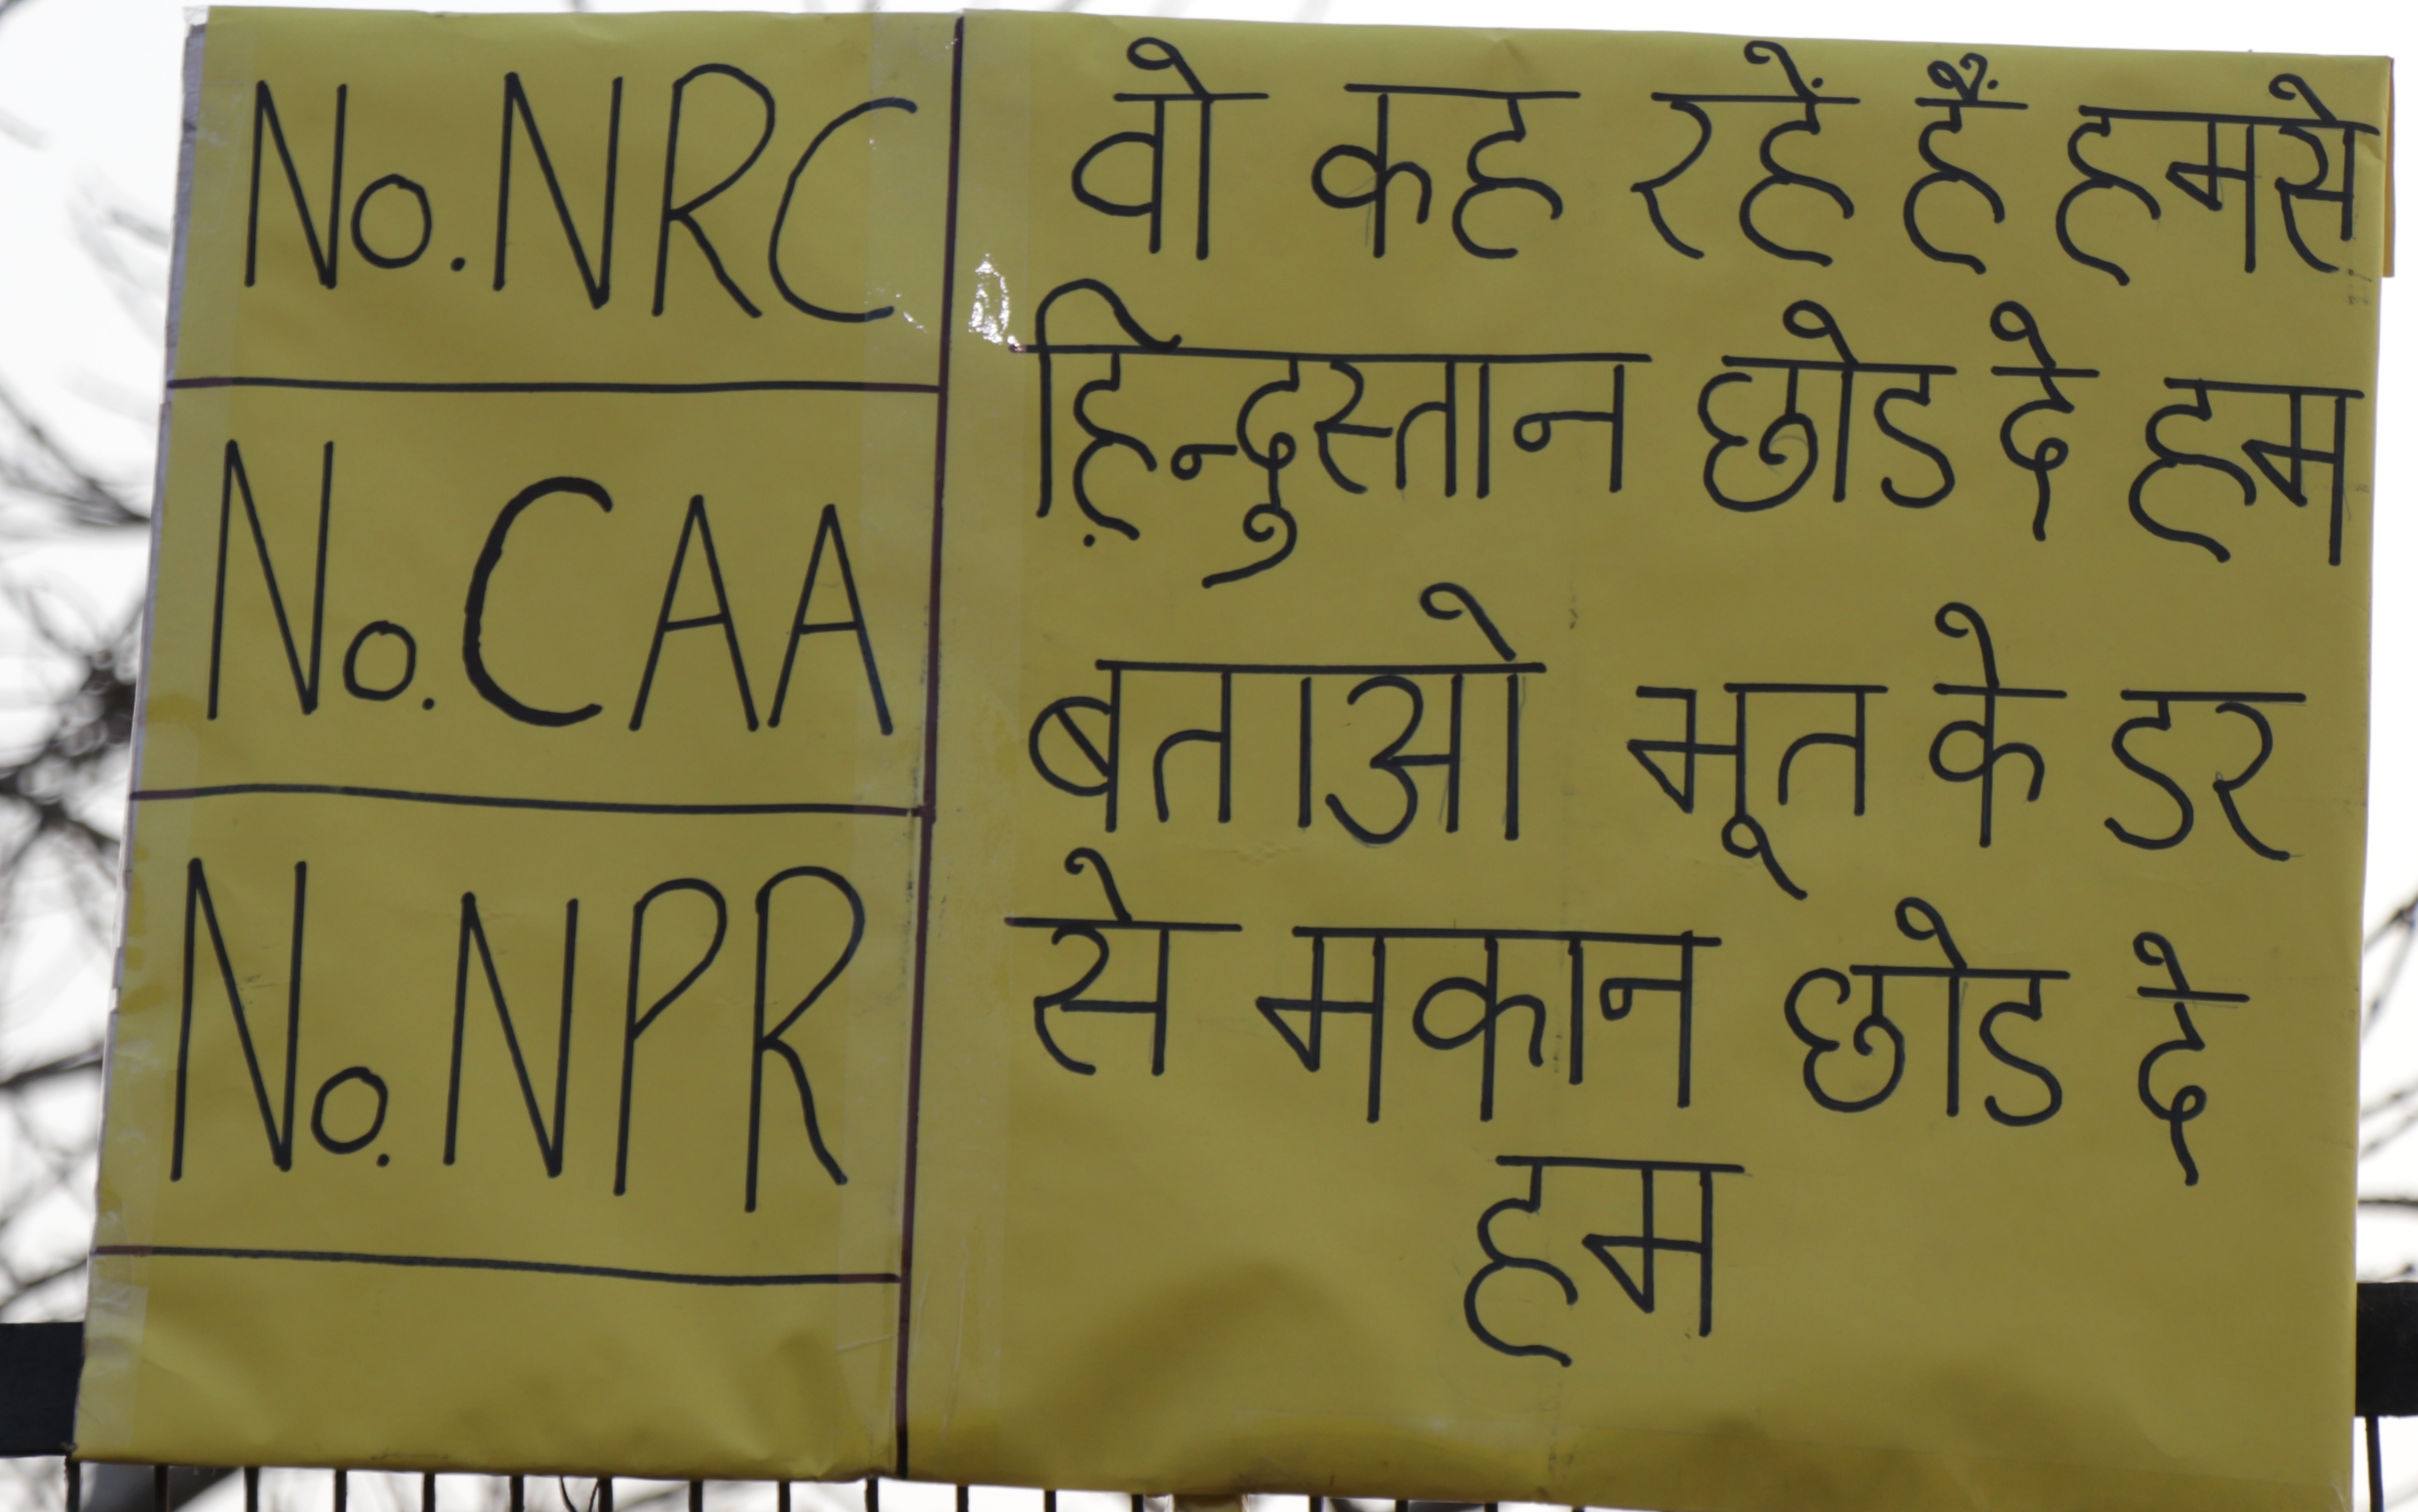 No. NRC
No. CAA
No. NPR
वो कह रहें हैं हमसे
हि़न्दुस्तान छोड दे हम
बताओ भूत के डर
से मकान छोड दे
हम